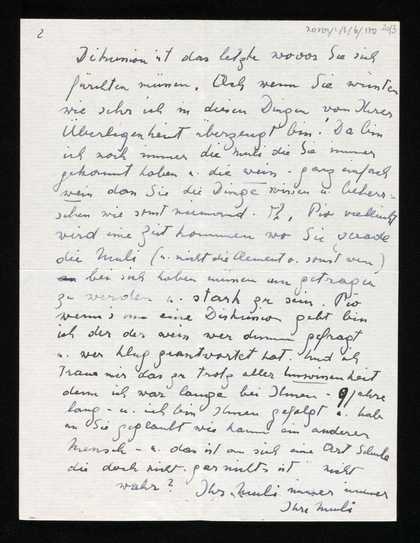 2
Diskussion ist das letzte wovor Sie sich
fürchten müssen. Ach wenn Sie wüssten
wie sehr ich in diesen Dingen von Ihrer
Überlegenheit überzeugt bin! Da bin
ich noch immer die Muli die Sie immer
gekannt haben u. die weiss - ganz einfach
weiss dass Sie die Dinge wissen u. beherr-
schen wie sonst niemand. Ja, Pio vielleicht
wird eine Zeit kommen wo Sie gerade
die Muli (u. nicht die Clement o. sonst wen)
bei sich haben müssen um getragen
zu werden u. stark zu sein. Pio
wenn's eine Diskussion gibt bin
ich der der weiss wer dumm gefragt
u. wer klug geantwortet hat. Und ich
traue mir das zu trotz aller Unwissenheit
denn ich war lange bei Ihnen - 9 Jahre
lang - u. ich bin Ihnen gefolgt u. hab
an Sie geglaubt wie kaum ein anderer
Mensch - u. das ist an sich eine Art Schule
die doch nicht gar nichts ist nicht
wahr? Ihre Muli immer immer
Ihre Muli